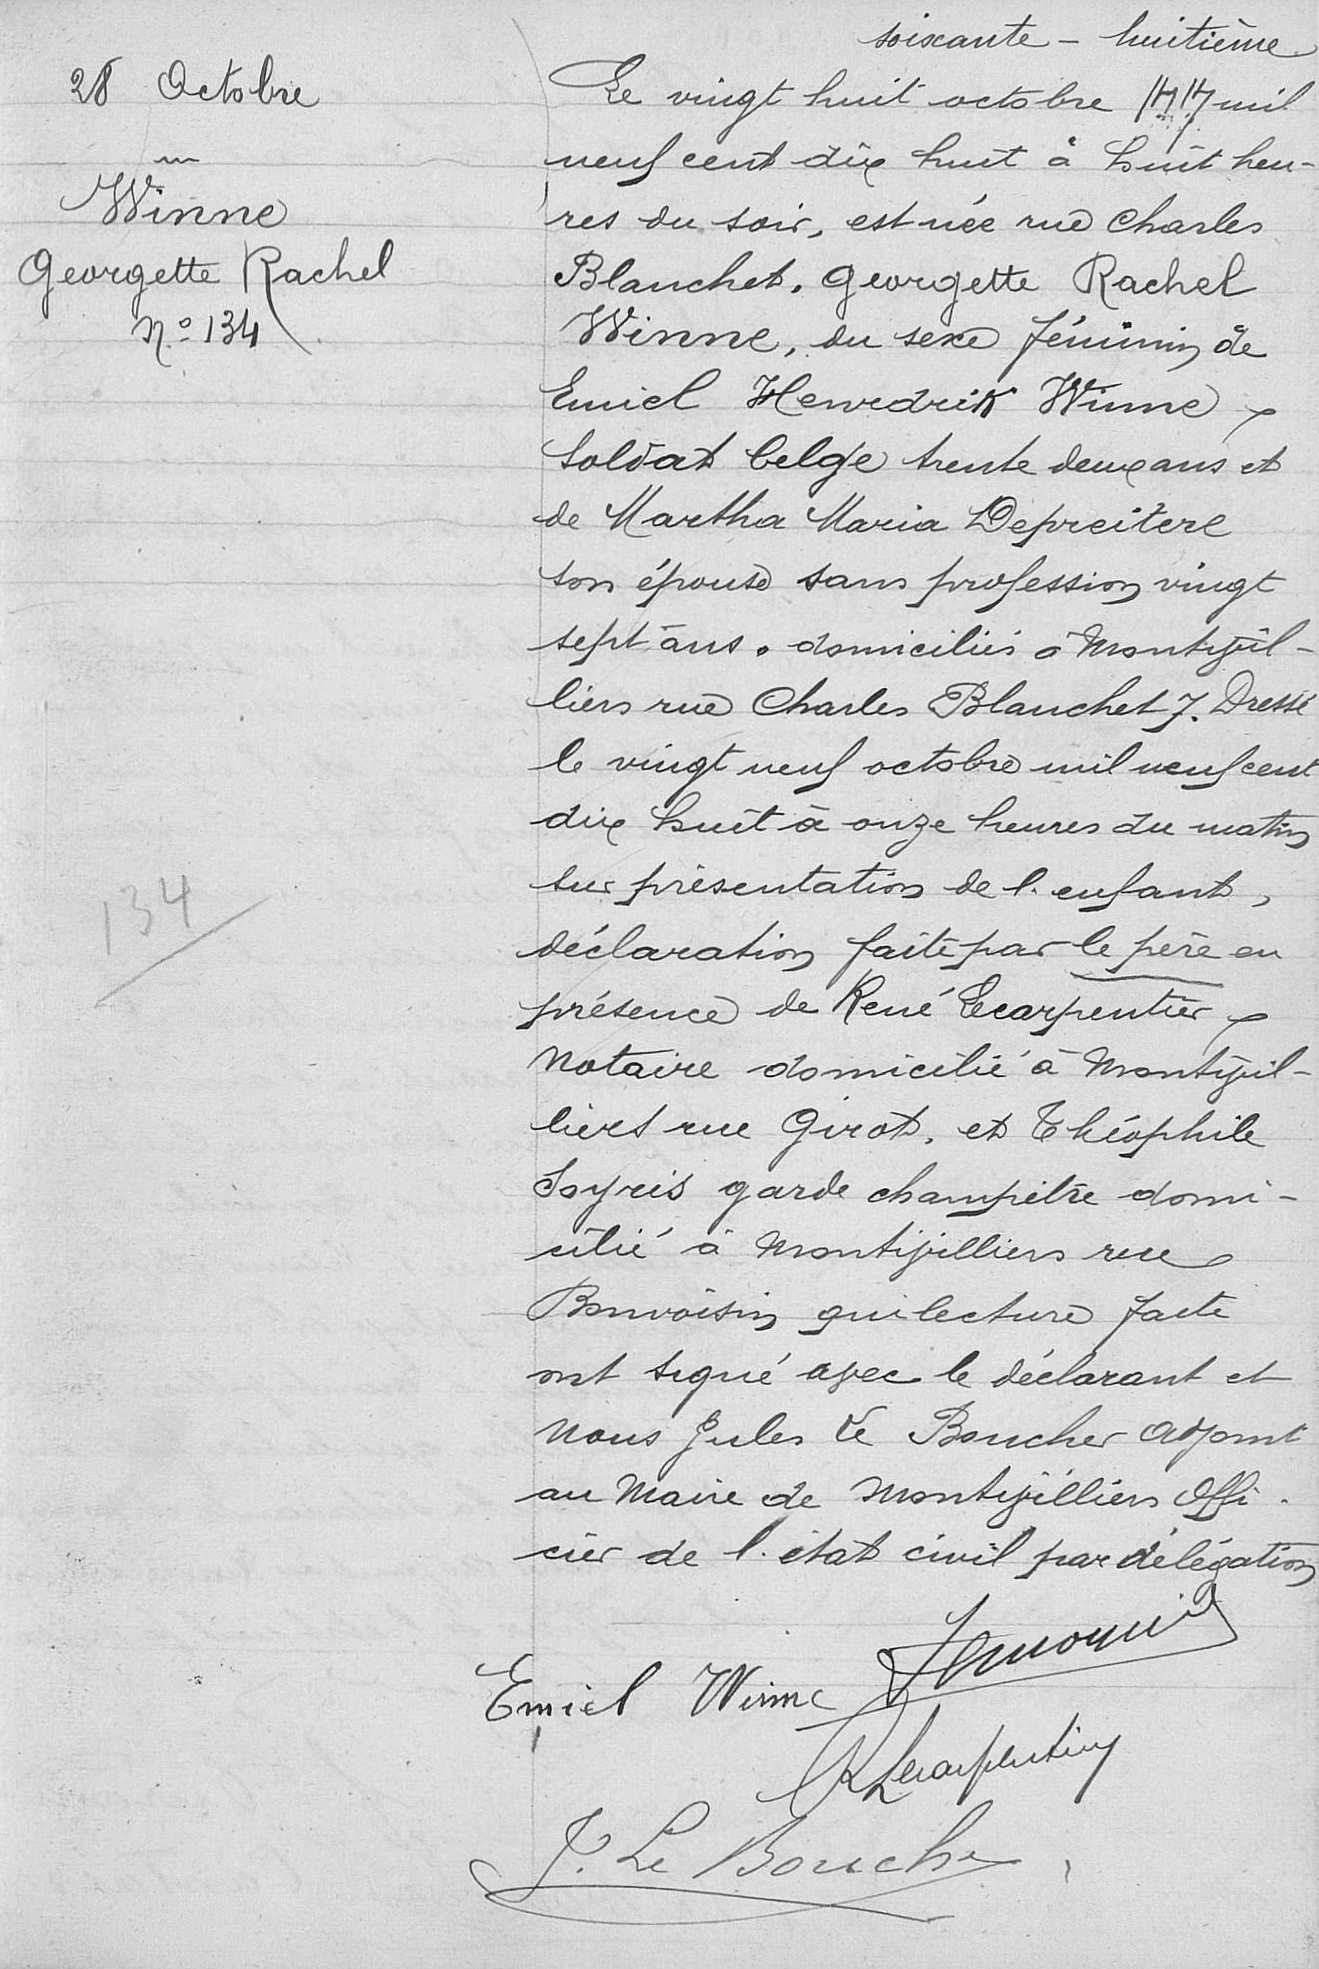 soixante - huitième
28 Octobre
Winne
Georgette Rachel
N.º 134
134
Le vingt huit octobre mil
neuf cent dix huit à huit heu-
res du soir, est née rue Charles
Blanchet, Georgette Rachel
Winne, du sexe féminin de
Emiel Hendrik Winne
soldat belge trente deux ans et
de Martha Maria Depreitere
son épouse sans profession vingt
sept ans. domiciliés à Montivil-
liers rue Charles Blanchet 7. Dressé
le vingt neuf octobre mil neuf cent
dix huit à onze heures du matin
sur présentation de l'enfant,
déclaration faite par le père en
présence de René Lecarpentier
notaire domicilié à Montivil-
liers rue Girot, et Théophile
garde champêtre domi-
cilié à Montivilliers rue
Bonvoisin qui lecture faite
ont signé avec le déclarant et
Nous Jules Le Boucher adjoint
au Maire de Montivilliers Offi-
cier de l'état civil par délégation
Emiel Winne
R Lecarpentier
J. Le Boucher